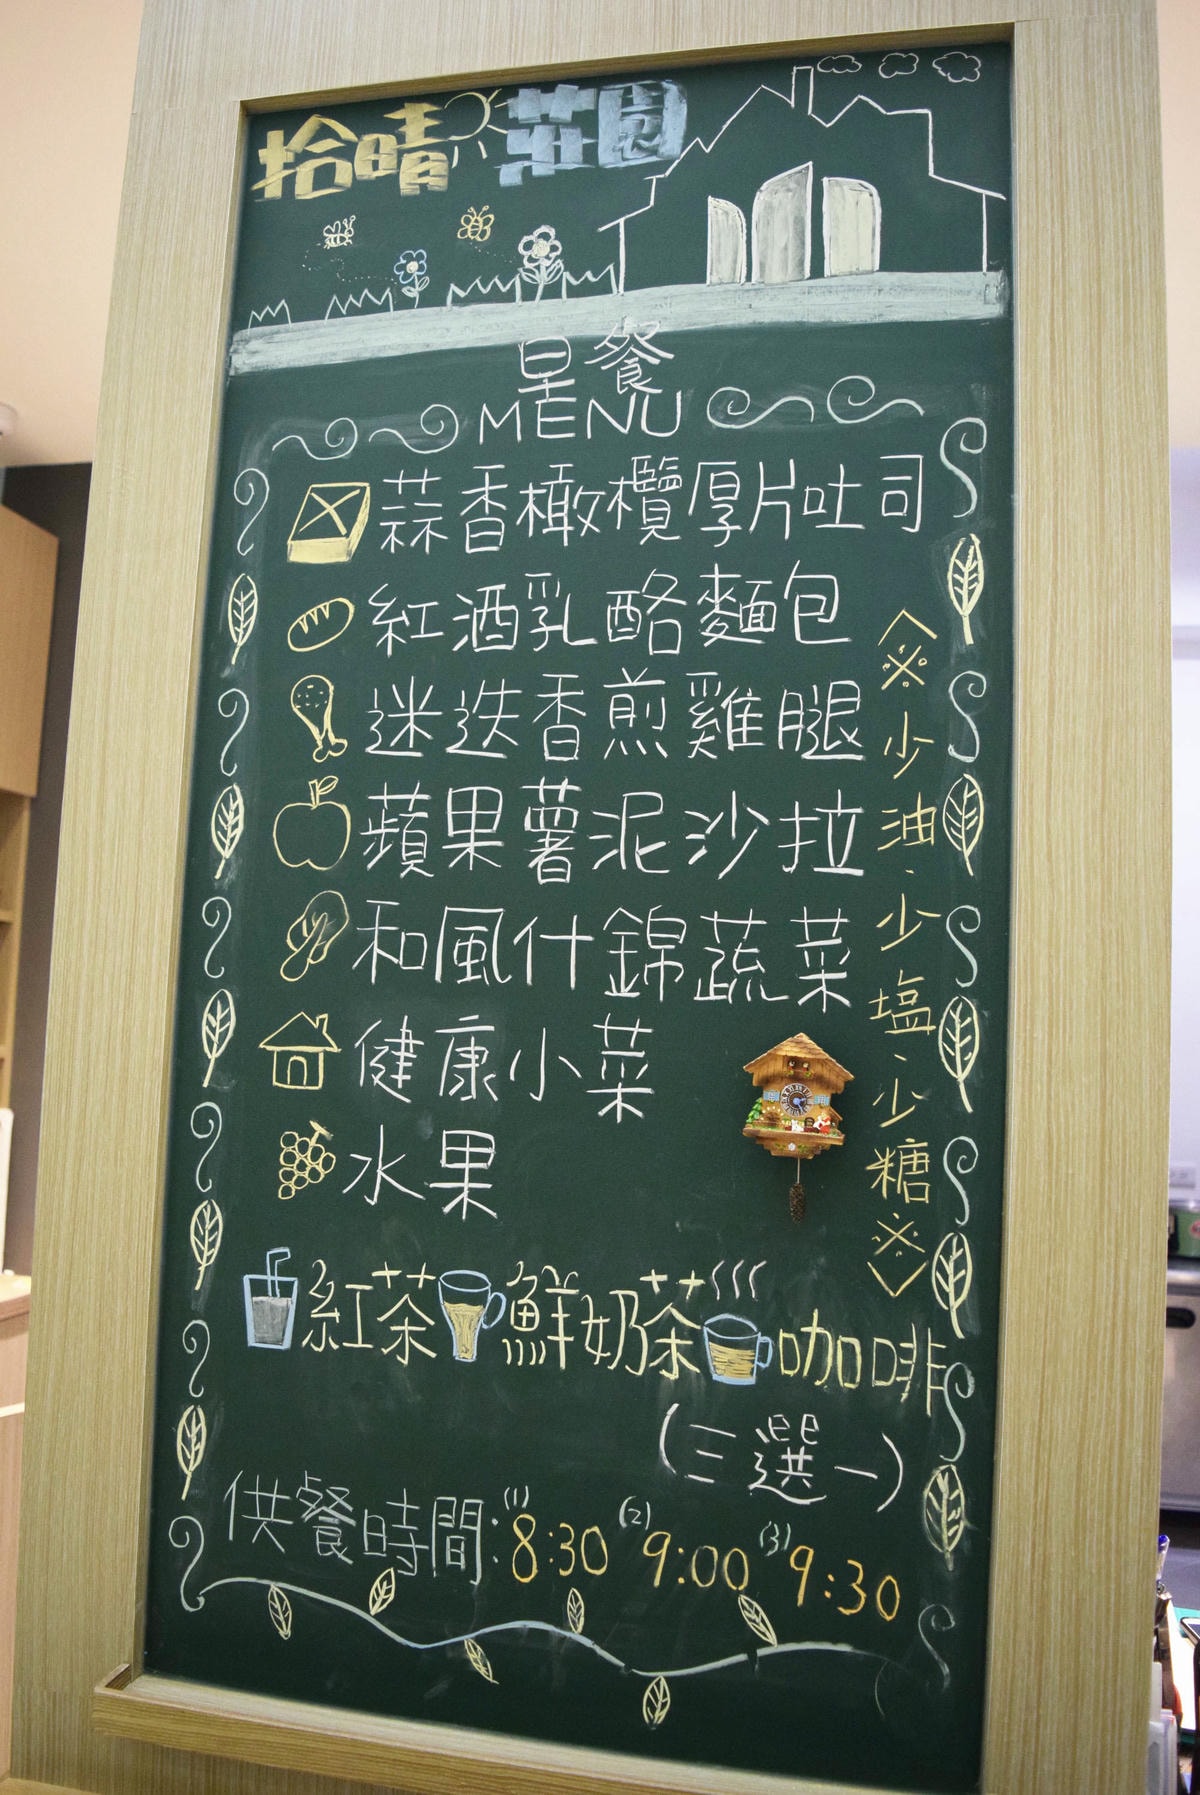 拾晴莊園
早餐
MENU
蒜香橄欖厚片吐司
紅酒乳酪麵包
迷迭香煎雞腿
蘋果薯泥沙拉
和風什錦蔬菜
健康小菜
水果
〈※少油、少塩、少糖※〉
紅茶 鮮奶茶 咖啡
(三選一)
供餐時間:(1)8:30 (2)9:00 (3)9:30